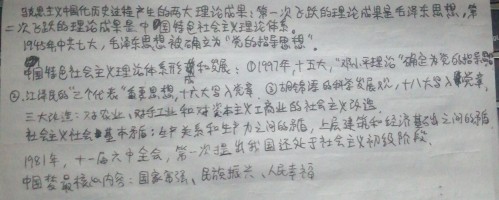 克思主义中国化历史进程产生的两大理论成果：第一次飞跃的理论成果是毛泽东思想，第
二次飞跃的理论成果是中国特色社会主义理论体系。
1945年中共七大，毛泽东思想被确立为“党的指导思想”。
中国特色社会主义理论体系形成和发展：①1997年，十五大，“邓小平理论”确立为党的指导思想
②.江泽民的“三个代表”重要思想，十六大写入党章 ③胡锦涛的科学发展观，十八大写入党章，
三大改造：对农业，对手工业和对资本主义工商业的社会主义改造
社会主义社会基本矛盾：生产关系和生产力之间的矛盾，上层建筑和经济基础之间的矛盾
1981年，十一届六中全会，第一次提出我国还处于社会主义初级阶段。
中国梦最核心内容：国家富强、民族振兴、人民幸福